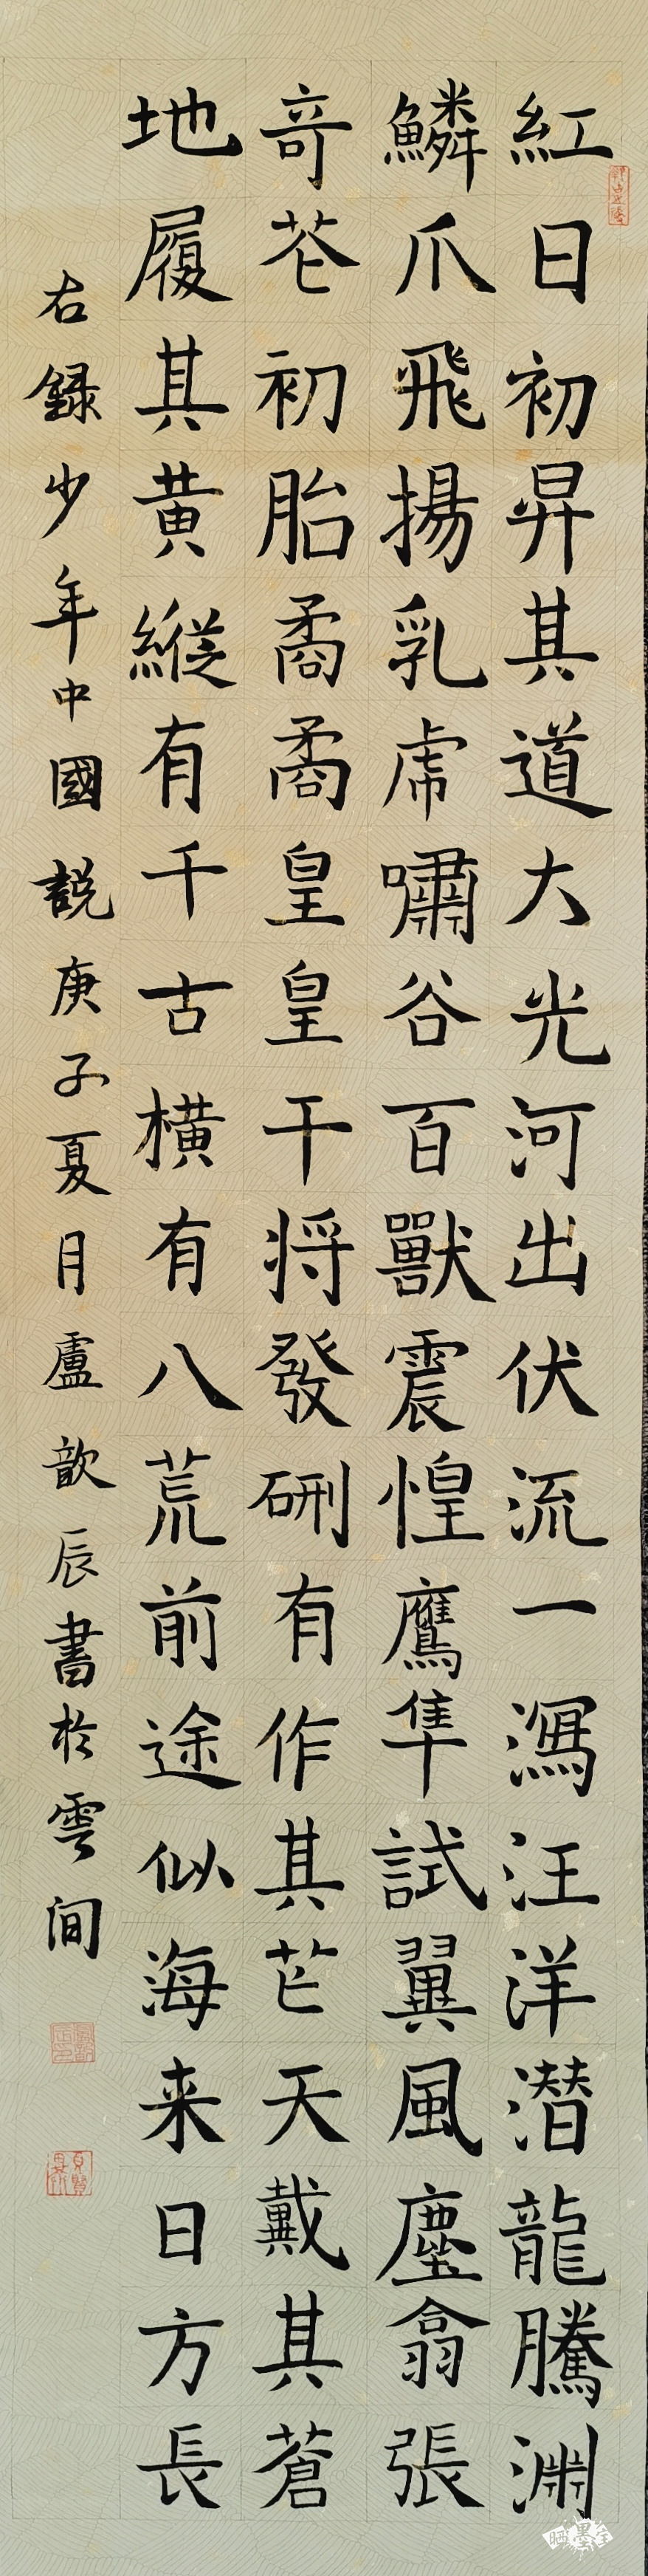 紅日初昇其道大光河出伏流一瀉汪洋潛龍騰淵
鱗爪飛揚乳虎嘯谷百獸震惶鷹隼試翼風塵翕張
奇花初胎矞矞皇皇干将發硎有作其芒天戴其蒼
地履其黄縱有千古横有八荒前途似海来日方長
右録少年中國説庚子夏月盧歆辰書於雲间